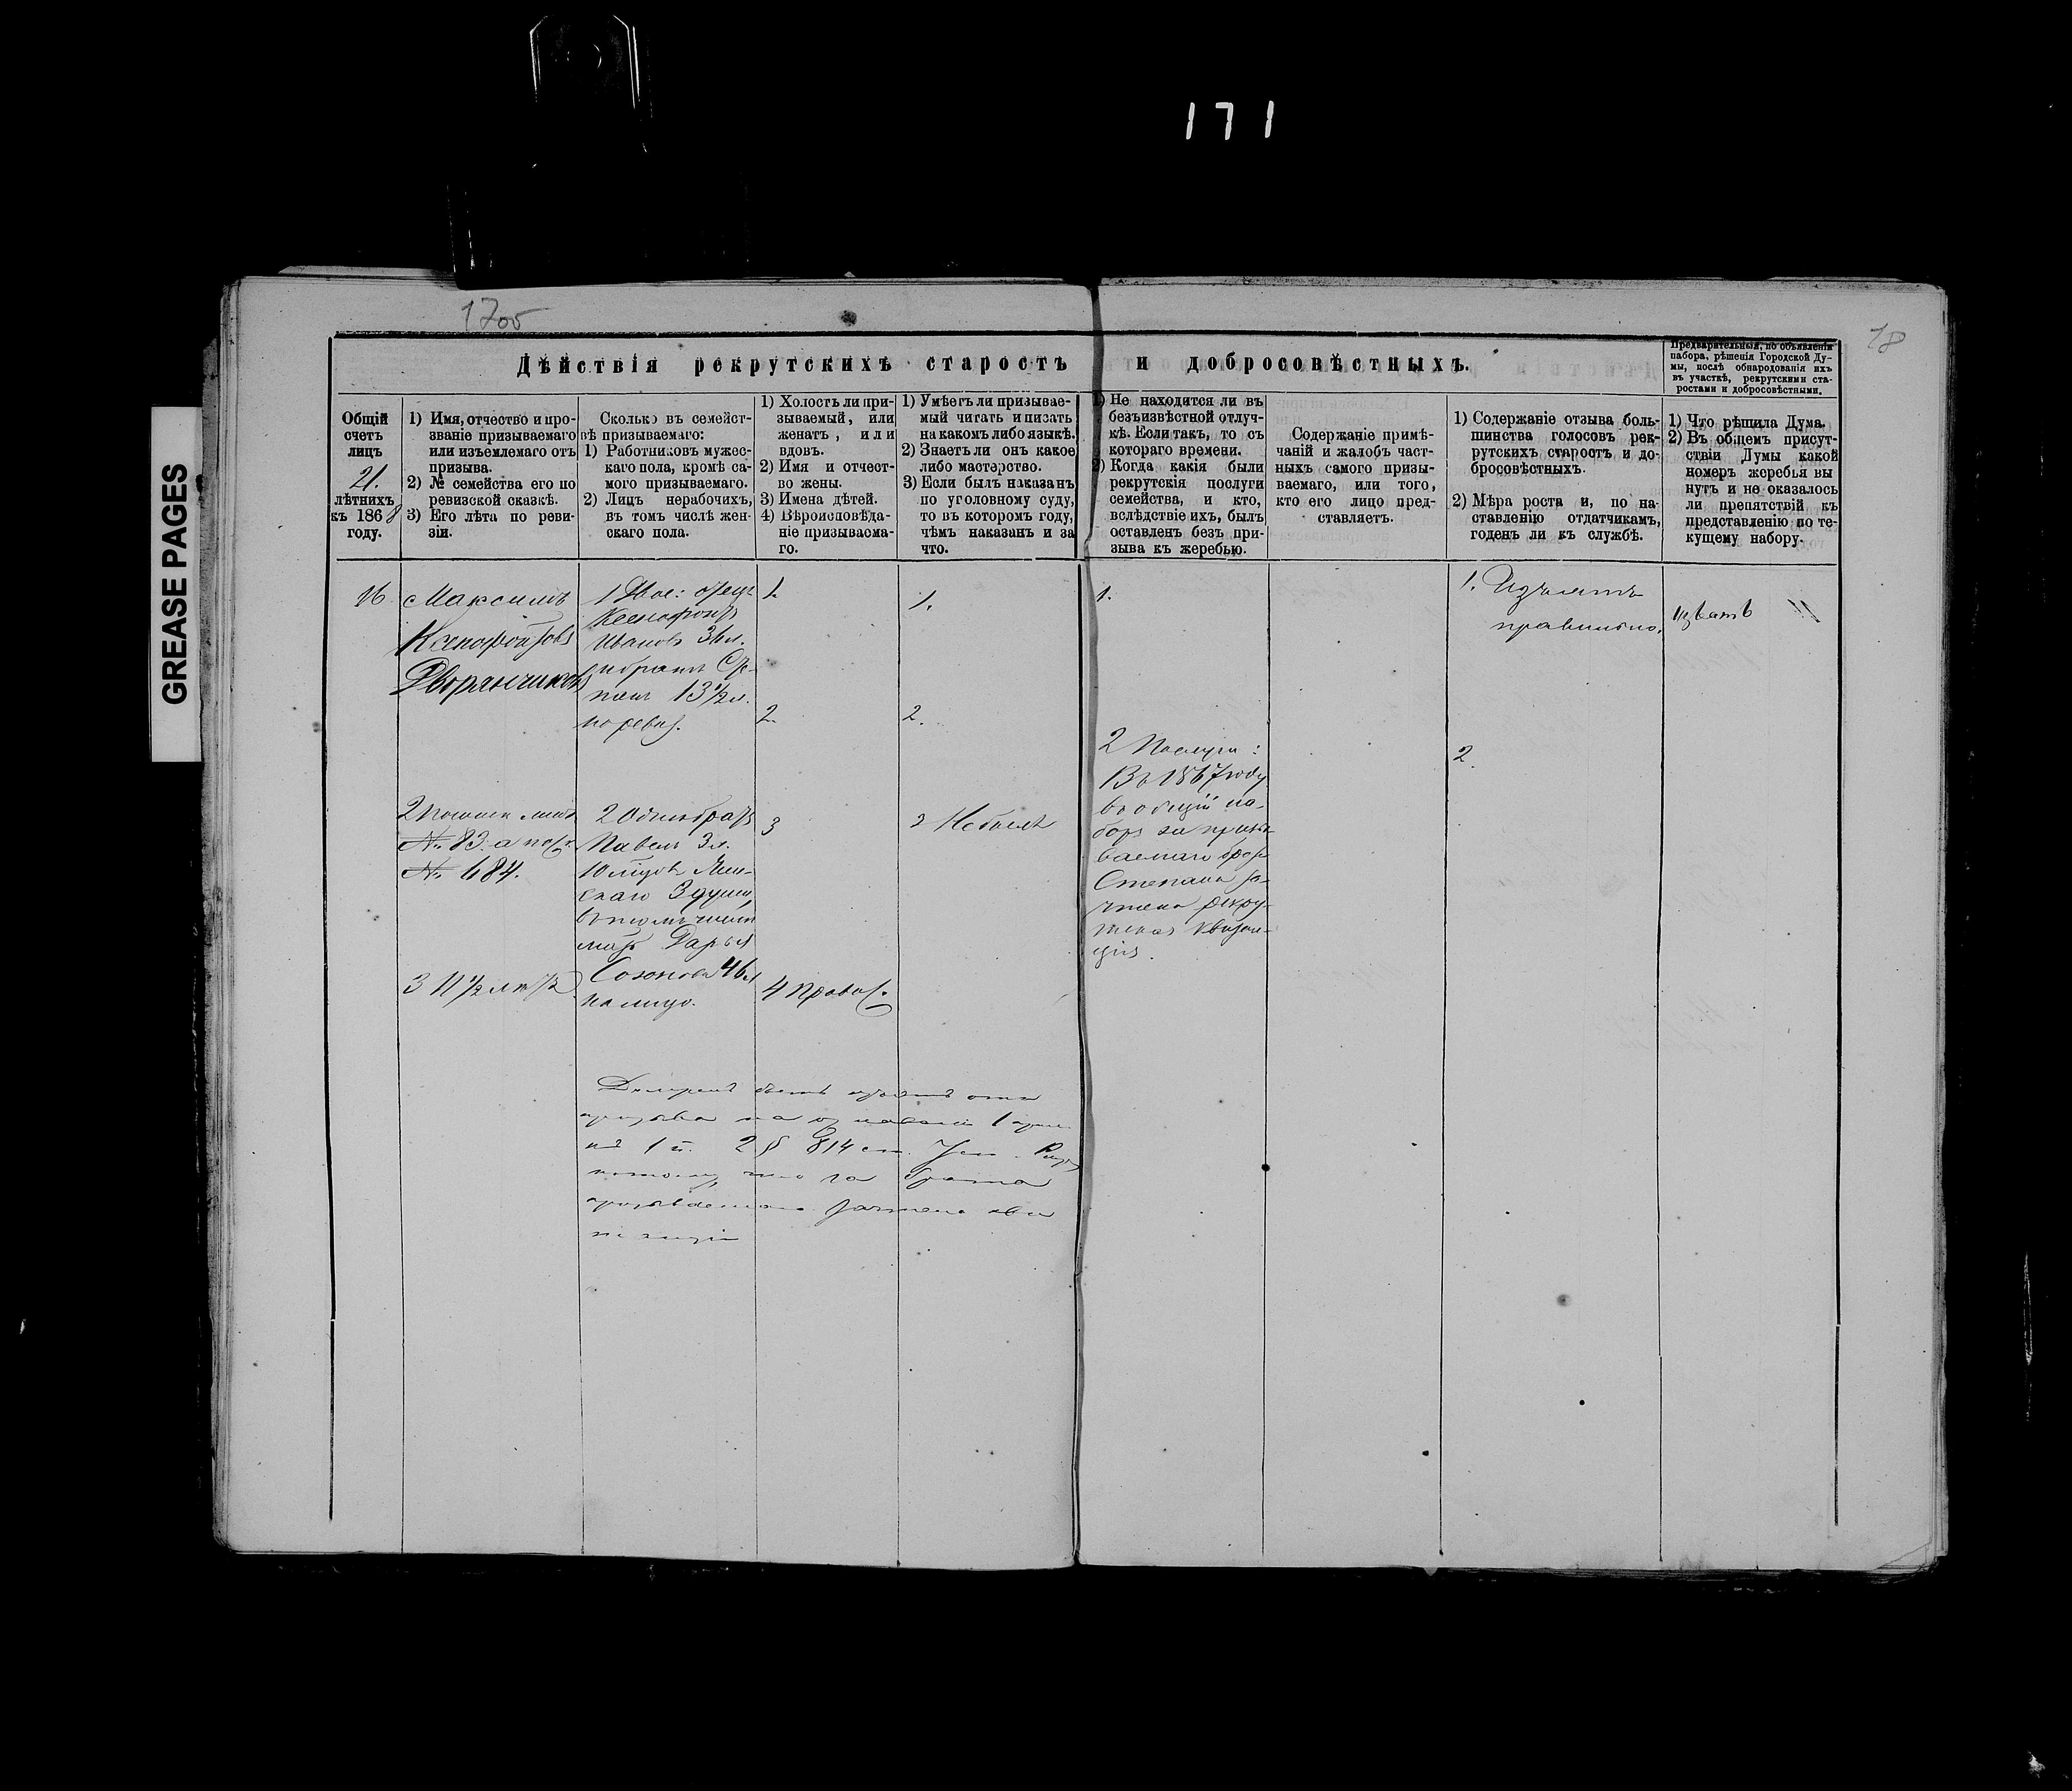 171
GREASE PAGES
1700
18
Дѣйствія рекрутскихъ старостъ и добросовѣстныхъ.
Предварительныя, по объявленіи
набора, рѣшенія Городской Ду-
мы, послѣ обнародованія ихъ
въ участкѣ, рекрутскими ста-
ростами и добросовѣстными.
Общій
счетъ
лицъ
21.
лѣтнихъ
къ 1868
году.
1) Имя, отчество и про-
званіе призываемаго
или изъемлемаго отъ
призыва.
2) № семейства его по
ревизской сказкѣ.
3) Его лѣта по реви-
зіи.
Сколько въ семейст-
вѣ призываемаго:
1) Работниковъ мужес-
каго пола, кромѣ са-
мого призываемаго.
2) Лицъ нерабочихъ,
въ томъ числѣ жен-
скаго пола.
1) Холостъ ли при-
зываемый, или
женатъ, или
вдовъ.
2) Имя и отчест-
во жены.
3) Имена дѣтей.
4) Вѣроисповѣда-
ніе призываема-
го.
1) Умѣетъ ли призывае-
мый читать и писать
на какомъ либо языкѣ.
2) Знаетъ ли онъ какое
либо мастерство.
3) Если былъ наказанъ
по уголовному суду,
то въ которомъ году,
чѣмъ наказанъ и за
что.
1) Не находится ли въ
безъизвѣстной отлуч-
кѣ. Если такъ, то съ
котораго времени.
2) Когда какія были
рекрутскія послуги
семейства, и кто,
вслѣдствіе ихъ, былъ
оставленъ безъ при-
зыва къ жеребью.
Содержаніе примѣ-
чаній и жалобъ част-
ныхъ самого призы-
ваемаго, или того,
кто его лицо пред-
ставляетъ.
1) Содержаніе отзыва боль-
шинства голосовъ рек-
рутскихъ старостъ и до-
бросовѣстныхъ.
2) Мѣра роста и, по на-
ставленію отдатчикамъ,
годенъ ли къ службѣ.
1) Что рѣшила Дума.
2) Въ общемъ присут-
ствіи Думы какой
номеръ жеребья вы
нутъ и не оказалось
ли препятствій къ
представленію по те-
кущему набору.
16
Максимъ
Ксенофонтовъ
Дворянчиковъ
2
№ 83. а по
№ 684.
3 11 1/2 лѣтъ
1 Двое: отецъ
Ксенофонтъ
Ивановъ 36 л.
и братъ Сте-
панъ 13 1/2 л.
по ревиз.
2 Одинъ братъ
Павелъ 3 л.
3 души,
мать Дарья
46 л
на лицо.
1.
2.
3
4 Правос.
1.
2.
3 Не былъ
1.
2 Послуги:
Въ 1867 году
въ общій на-
боръ за призы-
ваемаго брата
Степана за-
чтена рекру-
тская квитан-
ція.
1. Изъятъ
правильно.
2.
изъятъ
Долженъ быть изъятъ отъ
призыва на основаніи 1
1 п. 2 § 814 ст. Уст. Рекр.
потому, что за брата
призываемаго зачтена кви
танція